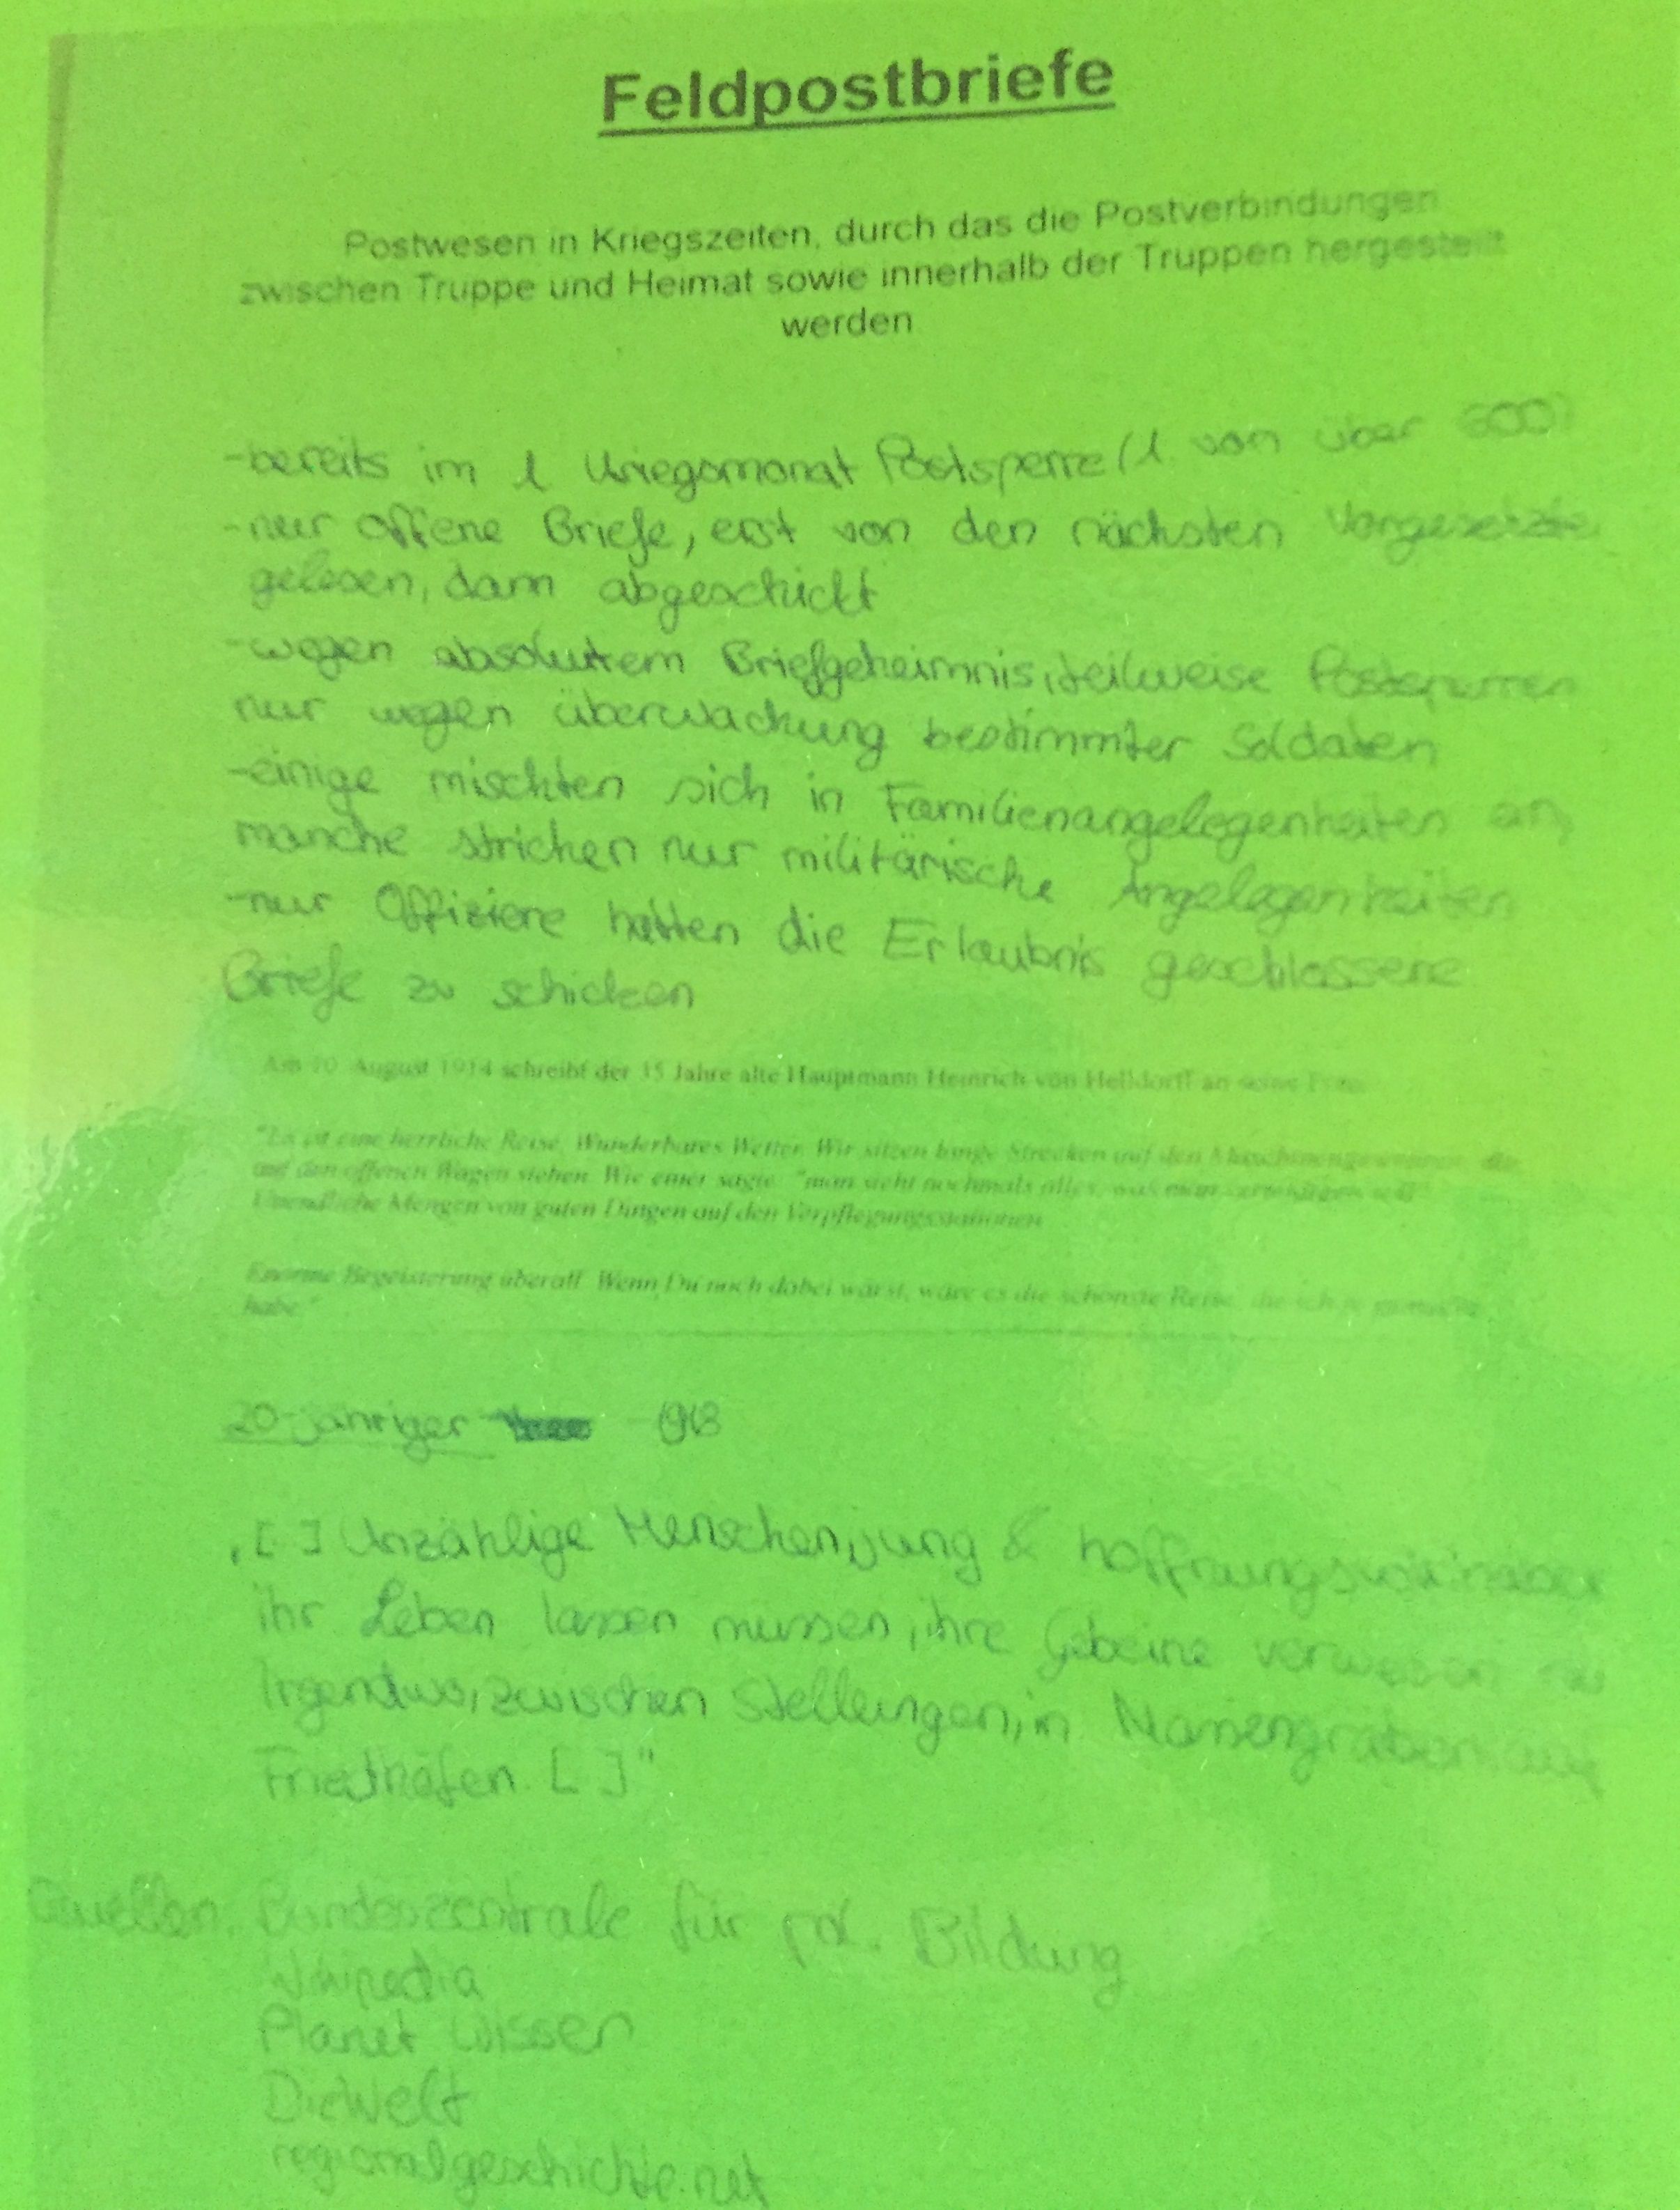 Feldpostbriefe
Postwesen in Kriegszeiten, durch das die Postverbindungen
zwischen Truppe und Heimat sowie innerhalb der Truppen hergestellt
werden
-bereits im 1 Kriegsmonat Postsperre (1. von über 600)
-nur offene Briefe, erst von den nächsten Vorgesetzte
gelesen, dann abgeschickt
-wegen absolutem Briefgeheimnis, teilweise Postsperren
nur wegen überwachung bestimmter Soldaten
-einige mischten sich in Familienangelegenheiten ein,
manche strichen nur militärische Angelegenheiten
-nur Offiziere hatten die Erlaubnis geschlossene
Briefe zu schicken
August 1914 schreibt der 35 Jahre alte Hauptmann Heinrich von Helldorff an seine Frau
"Es ist eine herrliche Reise. Wunderbares Wetter. Wir sitzen lange Strecken auf den Maschinengewehren, die
auf den offenen Wagen stehen. Wie einer sagte: "man sieht nochmals alles, was man verteidigen soll"
Unendliche Mengen von guten Dingen auf den Verpflegungsstationen
Enorme Begeisterung überall. Wenn Du noch dabei wärst, wäre es die schönste Reise, die ich je gemacht
habe."
20-jähriger - 1918
"[ ] Unzählige Menschen, jung & haben
ihr Leben lassen müssen, ihre Gebeine verwesen
Irgendwo, zwischen Stellungen, in Massengräbern auf
Friedhöfen. [ ]"
Quellen: Bundeszentrale für pol. Bildung
Wikipedia
Planet Wissen
DieWelt
regionalgeschichte.net